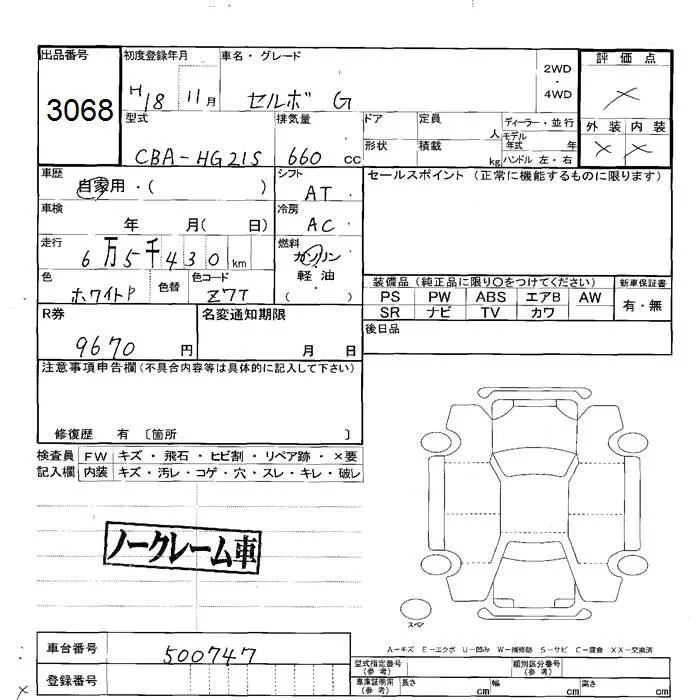 出品番号 初度登録年月 車名・グレード
3068 H18 11月 セルボ G 2WD・4WD
評価点
×
外装 内装
× ×
型式 排気量 ドア 定員 人 ディーラー・並行
CBA-HG21S 660 CC 形状 積載 kg モデル年式 年
ハンドル 左・右
車歴 シフト セールスポイント (正常に機能するものに限ります)
自家用・( ) AT
車検 冷房
年 月( 日) AC
走行 燃料
6万5千430km ガソリン
軽油
( )
色 色替 色コード
ホワイトP Z7T
装備品 (純正品に限り〇をつけてください) 新車保証書
PS PW ABS エアB AW 有・無
SR ナビ TV カワ
R券 名変通知期限 後日品
9670 円 月 日
注意事項申告欄(不具合内容等は具体的に記入して下さい)
修復歴 有 〔箇所 〕
検査員 FW キズ・飛石・ヒビ割・リペア跡・×要
記入欄 内装 キズ・汚レ・コゲ・穴・スレ・キレ・破レ
ノークレーム車
スペア
A-キズ E-エクボ U-凹み W-補修跡 S-サビ C-腐食 XX-交換済
車台番号 500747
型式指定番号(参考) 類別区分番号(参考)
登録番号
車庫証明用(参考) 長さ cm 幅 cm 高さ cm
×